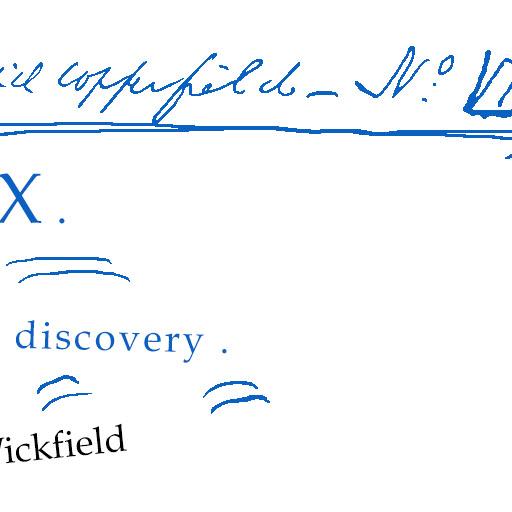 Copperfield – No. VI
X.
discovery.
Wickfield